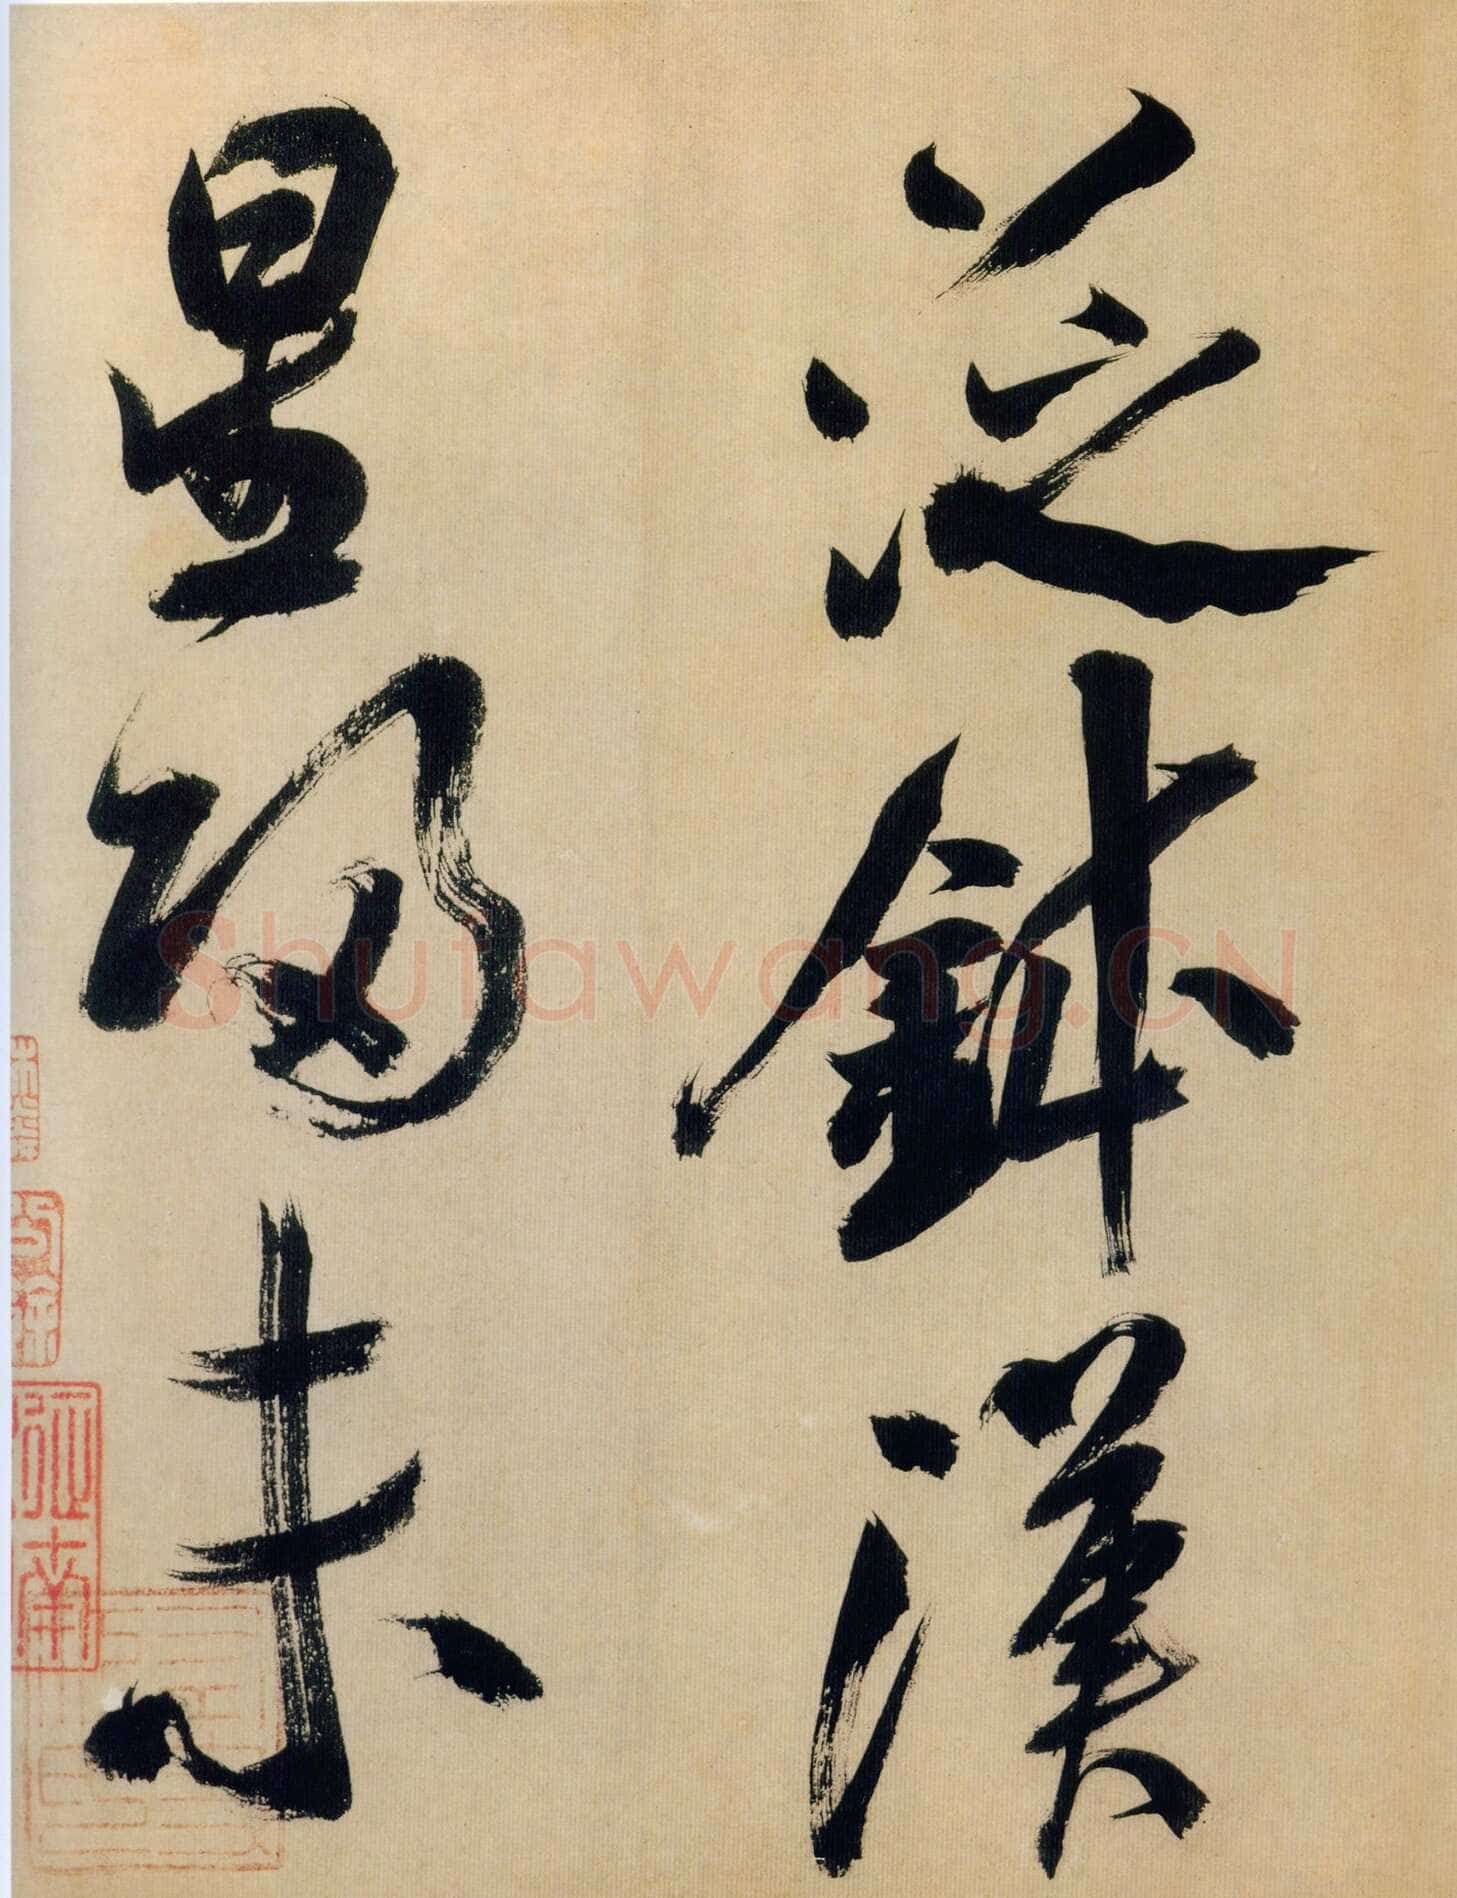 泛鉢漢
星歸未
Shufawang.CN